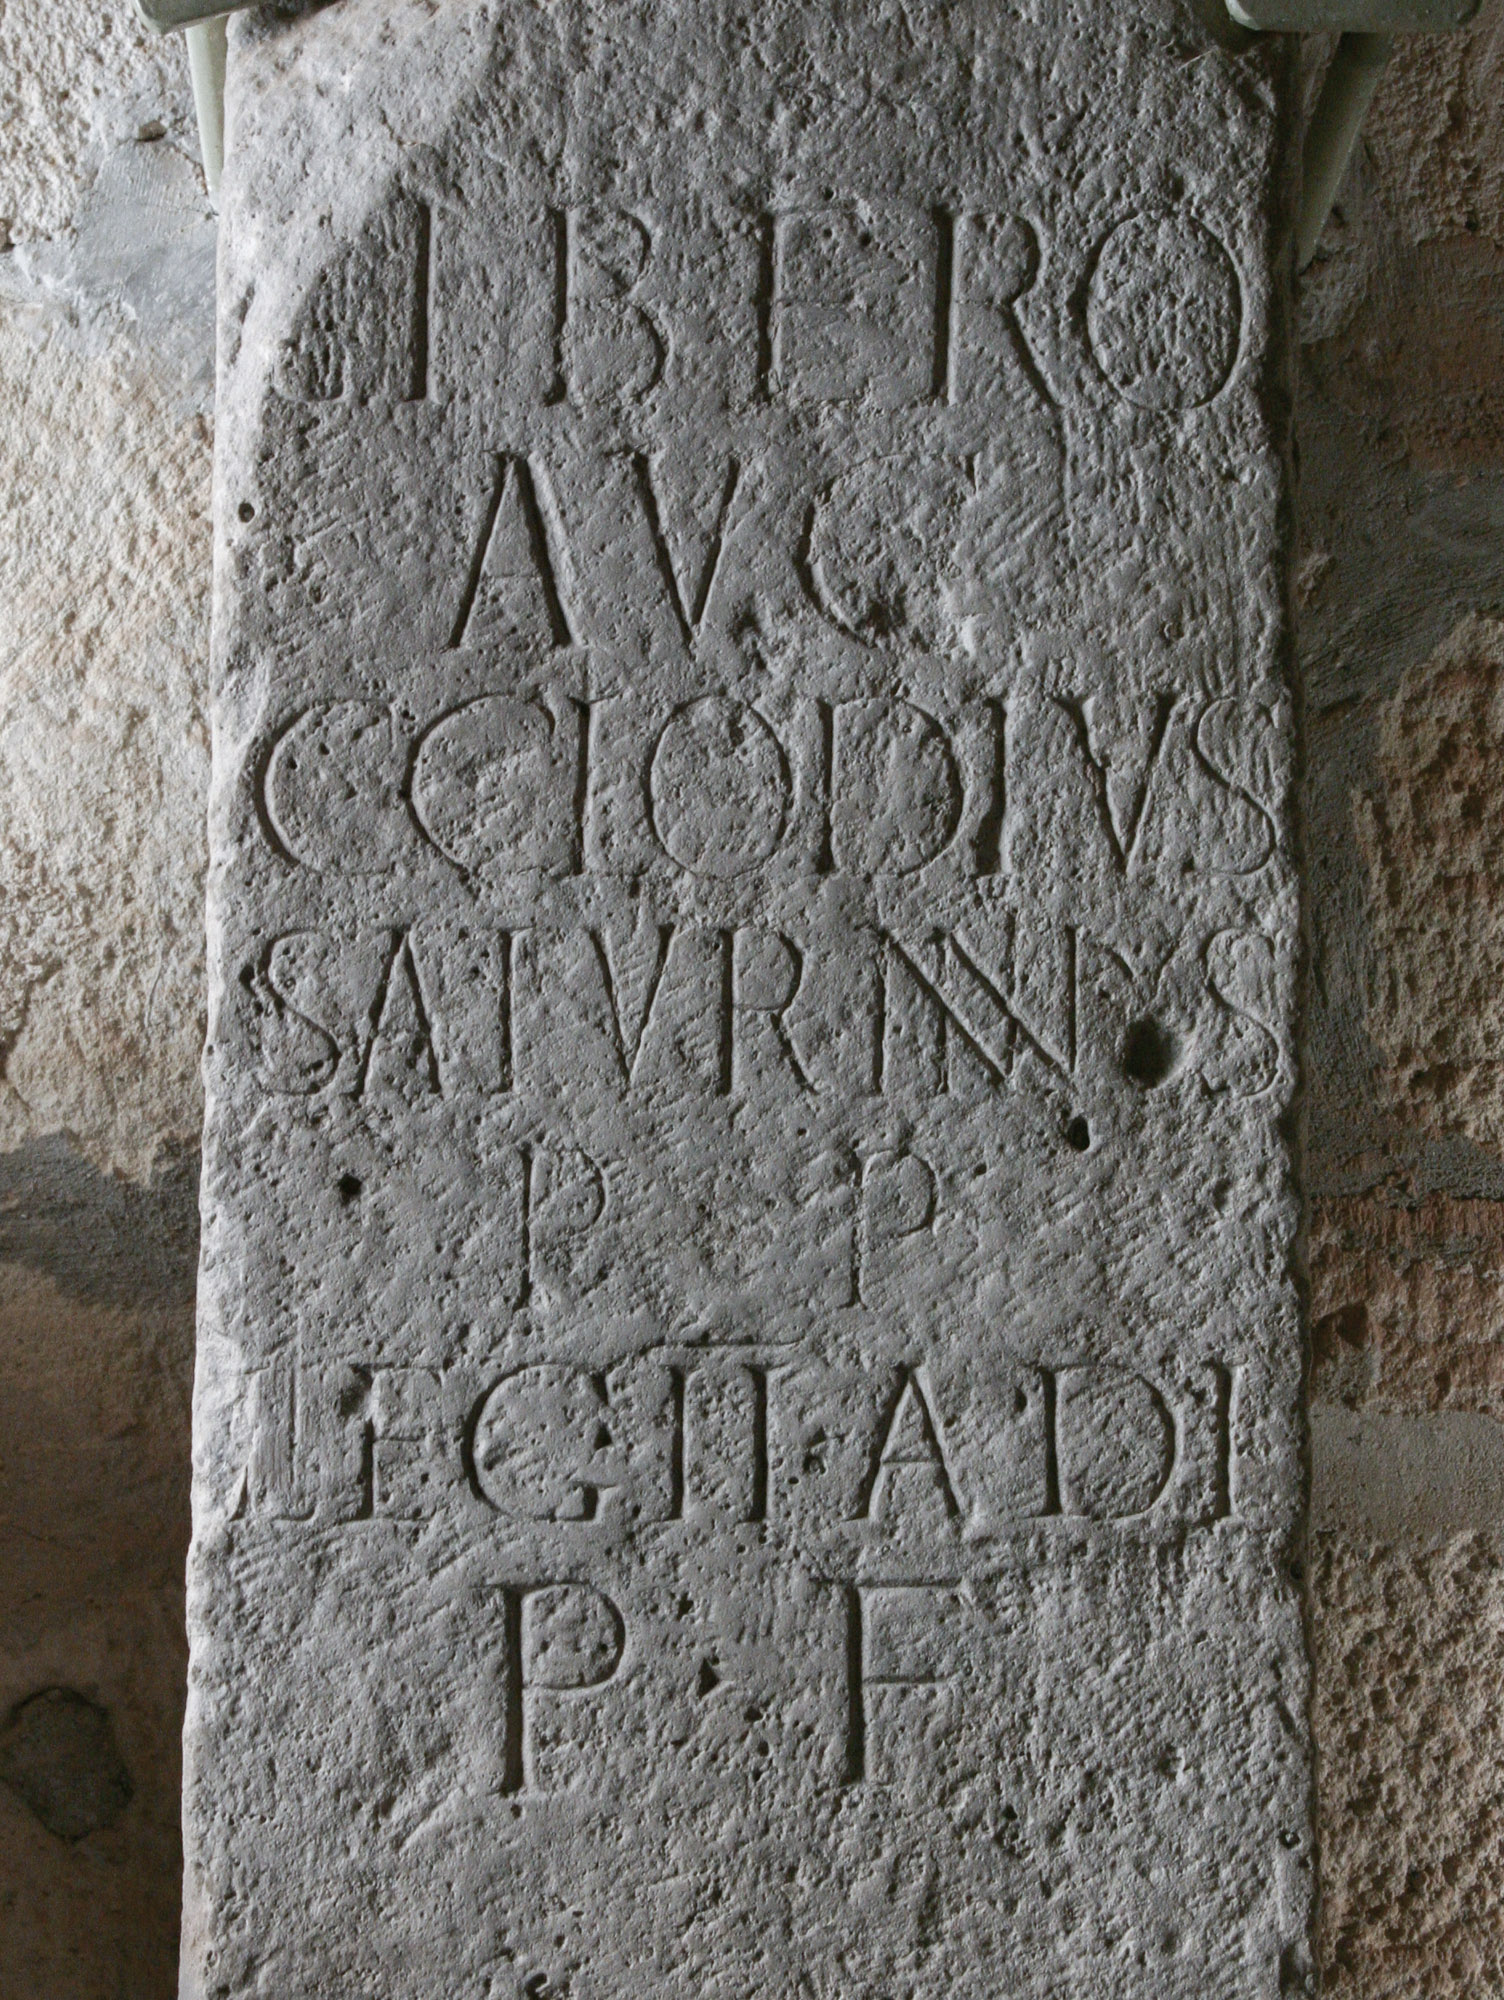 LIBERO
AVG
C CLODIVS
SATVRNINVS
P P
LEG II ADI
P F